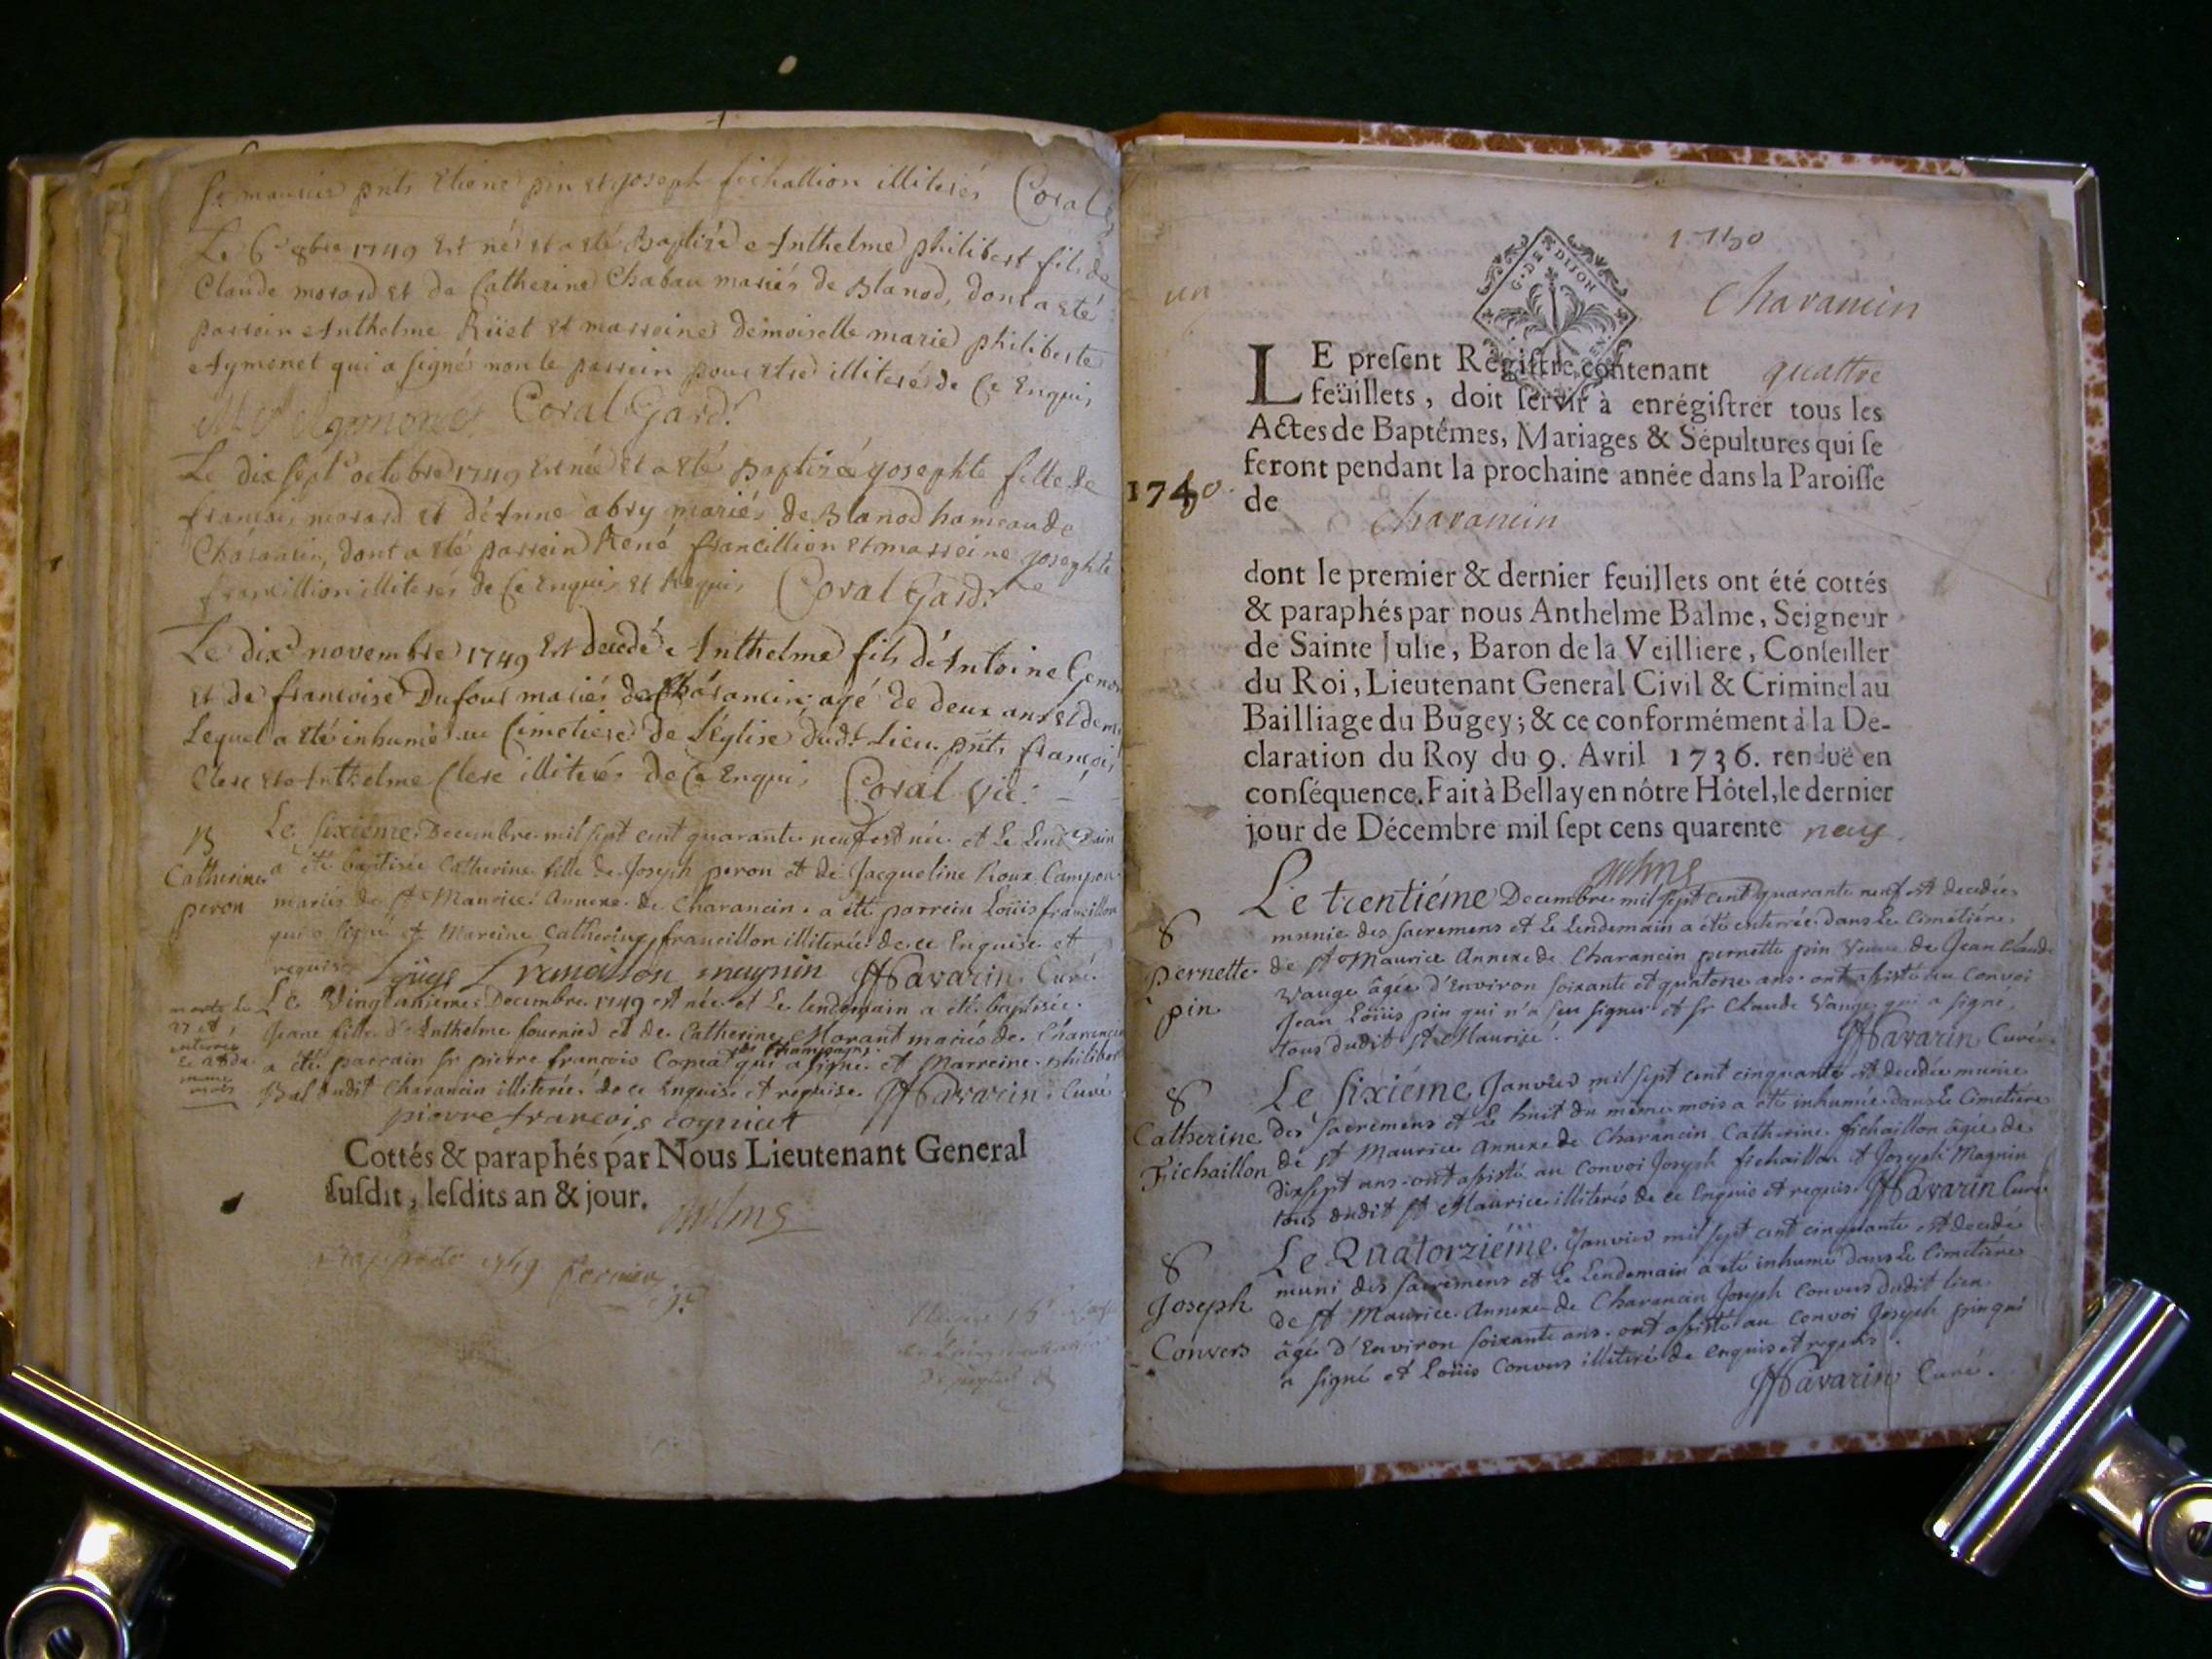 St maurice pnts Etiene pin et joseph fichallion illiterés Coral
Le 6e 8bre 1749 Est né et a eté Baptisé Anthelme philibert fils de
Claude morard et de Catherine Chabau mariés de Blanod, dont a eté
parrein Anthelme Rüet et marreine demoiselle marie philiberte
Aymonet qui a signé non le parrein pour etre illiteré de Ce Enquis
Coral Gard.
Le dix sept octobre 1749 Est née et a eté Baptisée josephte fille de
françois morard et d'Anne abry mariés de Blanod hameau de
Charancin, dont a eté parrein René francillion et marreine josephte
francillion illiterés de Ce Enquis et Requis Coral Gard.
Le dix novembre 1749 Est decedé Anthelme fils d'Antoine Genou
et de francoise Dufour mariés de Charancin agé de deux ans et demi
Lequel a eté inhumé au Cimetiere de L'Eglise dudt Lieu pnts françois
Clerc et Anthelme Clerc illiterés de Ce Enquis Coral Vic.
B
Catherine
peron
Le sixiéme Decembre mil sept cent quarante neuf est née et Le Lendemain
a été baptisée Catherine fille de Joseph peron et de Jacqueline Rioux Campon
mariés de St Maurice Annexe de Charancin. a été parrein Loüis francillon
qui a signé et Mareine Catherine francillon illiterée de ce Enquise et
requise Loüis Francillon magnin JfSavarin Curé
morte le
27 et
enterrée
Le 28 du
meme
mois
Le Vingtuniéme Decembre 1749 est née et Le lendemain a été baptisée
Jeane fille d'Anthelme fournied et de Catherine Morant mariés de Charancin
de Champagne
a été parrain Sr pierre françois Cogniat qui a signé et Marreine philiberte
Bal dudit Charancin illiterée de ce Enquise et requise JfSavarin Curé
pierre françois cogniat
Cottés & paraphés par Nous Lieutenant General
susdit, lesdits an & jour.
1749
1750
un
Charancin
G. DE DIJON
LE present Régistre contenant quattre
feüillets, doit servir à enrégistrer tous les
Actes de Baptêmes, Mariages & Sépultures qui se
feront pendant la prochaine année dans la Paroisse
1750.
de Charancin
dont le premier & dernier feuillets ont été cottés
& paraphés par nous Anthelme Balme, Seigneur
de Sainte Julie, Baron de la Veilliere, Conseiller
du Roi, Lieutenant General Civil & Criminel au
Bailliage du Bugey; & ce conformément à la De-
claration du Roy du 9. Avril 1736. renduë en
conséquence. Fait à Bellay en nôtre Hôtel, le dernier
jour de Décembre mil sept cens quarente neuf.
S
pernette
pin
Le trentiéme Decembre mil sept cent quarante neuf est decedée
munie des sacremens et Le Lendemain a été enterrée dans Le Cimetiére
de St Maurice Annexe de Charancin pernette pin veuve de Jean Claude
Vauge âgée d'Environ soixante et quatorze ans. ont assisté au Convoi
Jean Loüis pin qui n'a seu signer et Sr Claude Vauge qui a signé,
tous dudit St Maurice. JfSavarin Curé
S
Catherine
Fichaillon
Le sixiéme Janvier mil sept cent cinquante est decedée munie
des sacremens et Le huit du même mois a été inhumée dans Le Cimetiére
de St Maurice Annexe de Charancin Catherine fichaillon âgée de
dixsept ans. ont assisté au Convoi Joseph fichaillon et Joseph Magnin
tous dudit St Maurice illiterés de ce Enquis et requis JfSavarin Curé
S
Joseph
Convers
Le Quatorziéme Janvier mil sept cent cinquante est decedé
muni des sacremens et Le Lendemain a été inhumé dans Le Cimetiére
de St Maurice Annexe de Charancin Joseph Convers dudit lieu
âgé d'Environ soixante ans. ont assisté au Convoi Joseph pin qui
a signé et Loüis Convers illiteré de enquis et requis.
JfSavarin Curé.